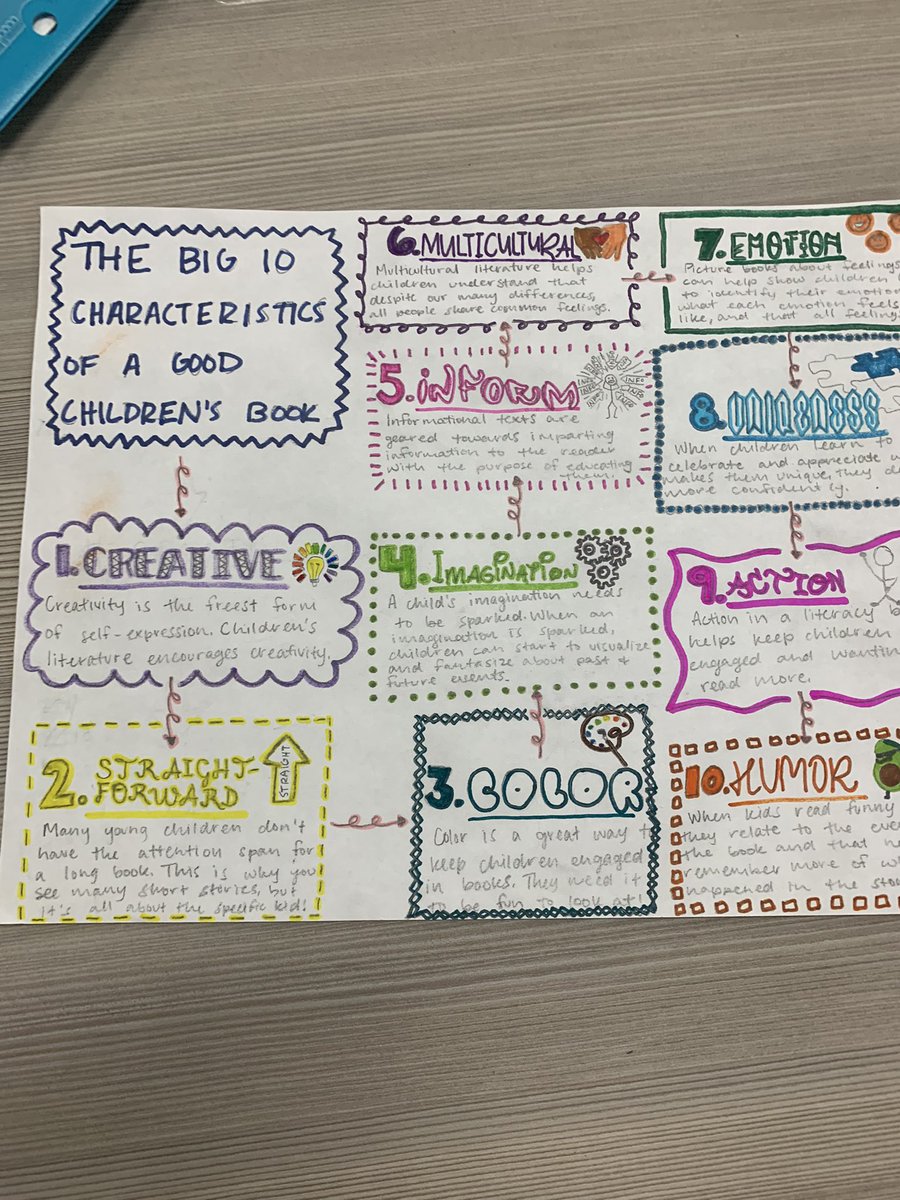 THE BIG 10
CHARACTERISTICS
OF A GOOD
CHILDREN'S BOOK
1. CREATIVE
Creativity is the freest form
of self-expression. Children's
literature encourages creativity.
2. STRAIGHT-
FORWARD
STRAIGHT
Many young children don't
have the attention span for
a long book. This is why you
see many short stories, but
it's all about the specific kid!
3. COLOR
Color is a great way to
keep children engaged
in books. They need it
to be fun to look at!
4. IMAGINATION
A child's imagination needs
to be sparked. When an
imagination is sparked,
children can start to visualize
and fantasize about past &
future events.
5. INFORM
INFO
Informational texts are
geared towards imparting
information to the reader
with the purpose of educating
them.
6. MULTICULTURAL
Multicultural literature helps
children understand that
despite our many differences,
all people share common feelings.
7. EMOTION
Picture books about feelings
can help show children
to identify their emotion
what each emotion feels
like, and that all feeling
8.
When children learn to
celebrate and appreciate
makes them unique, they
more confidently.
9. ACTION
Action in a literacy
helps keep children
engaged and
read more.
10. HUMOR
When kids read funny
they relate to the
the book and that
remember more of
happened in the